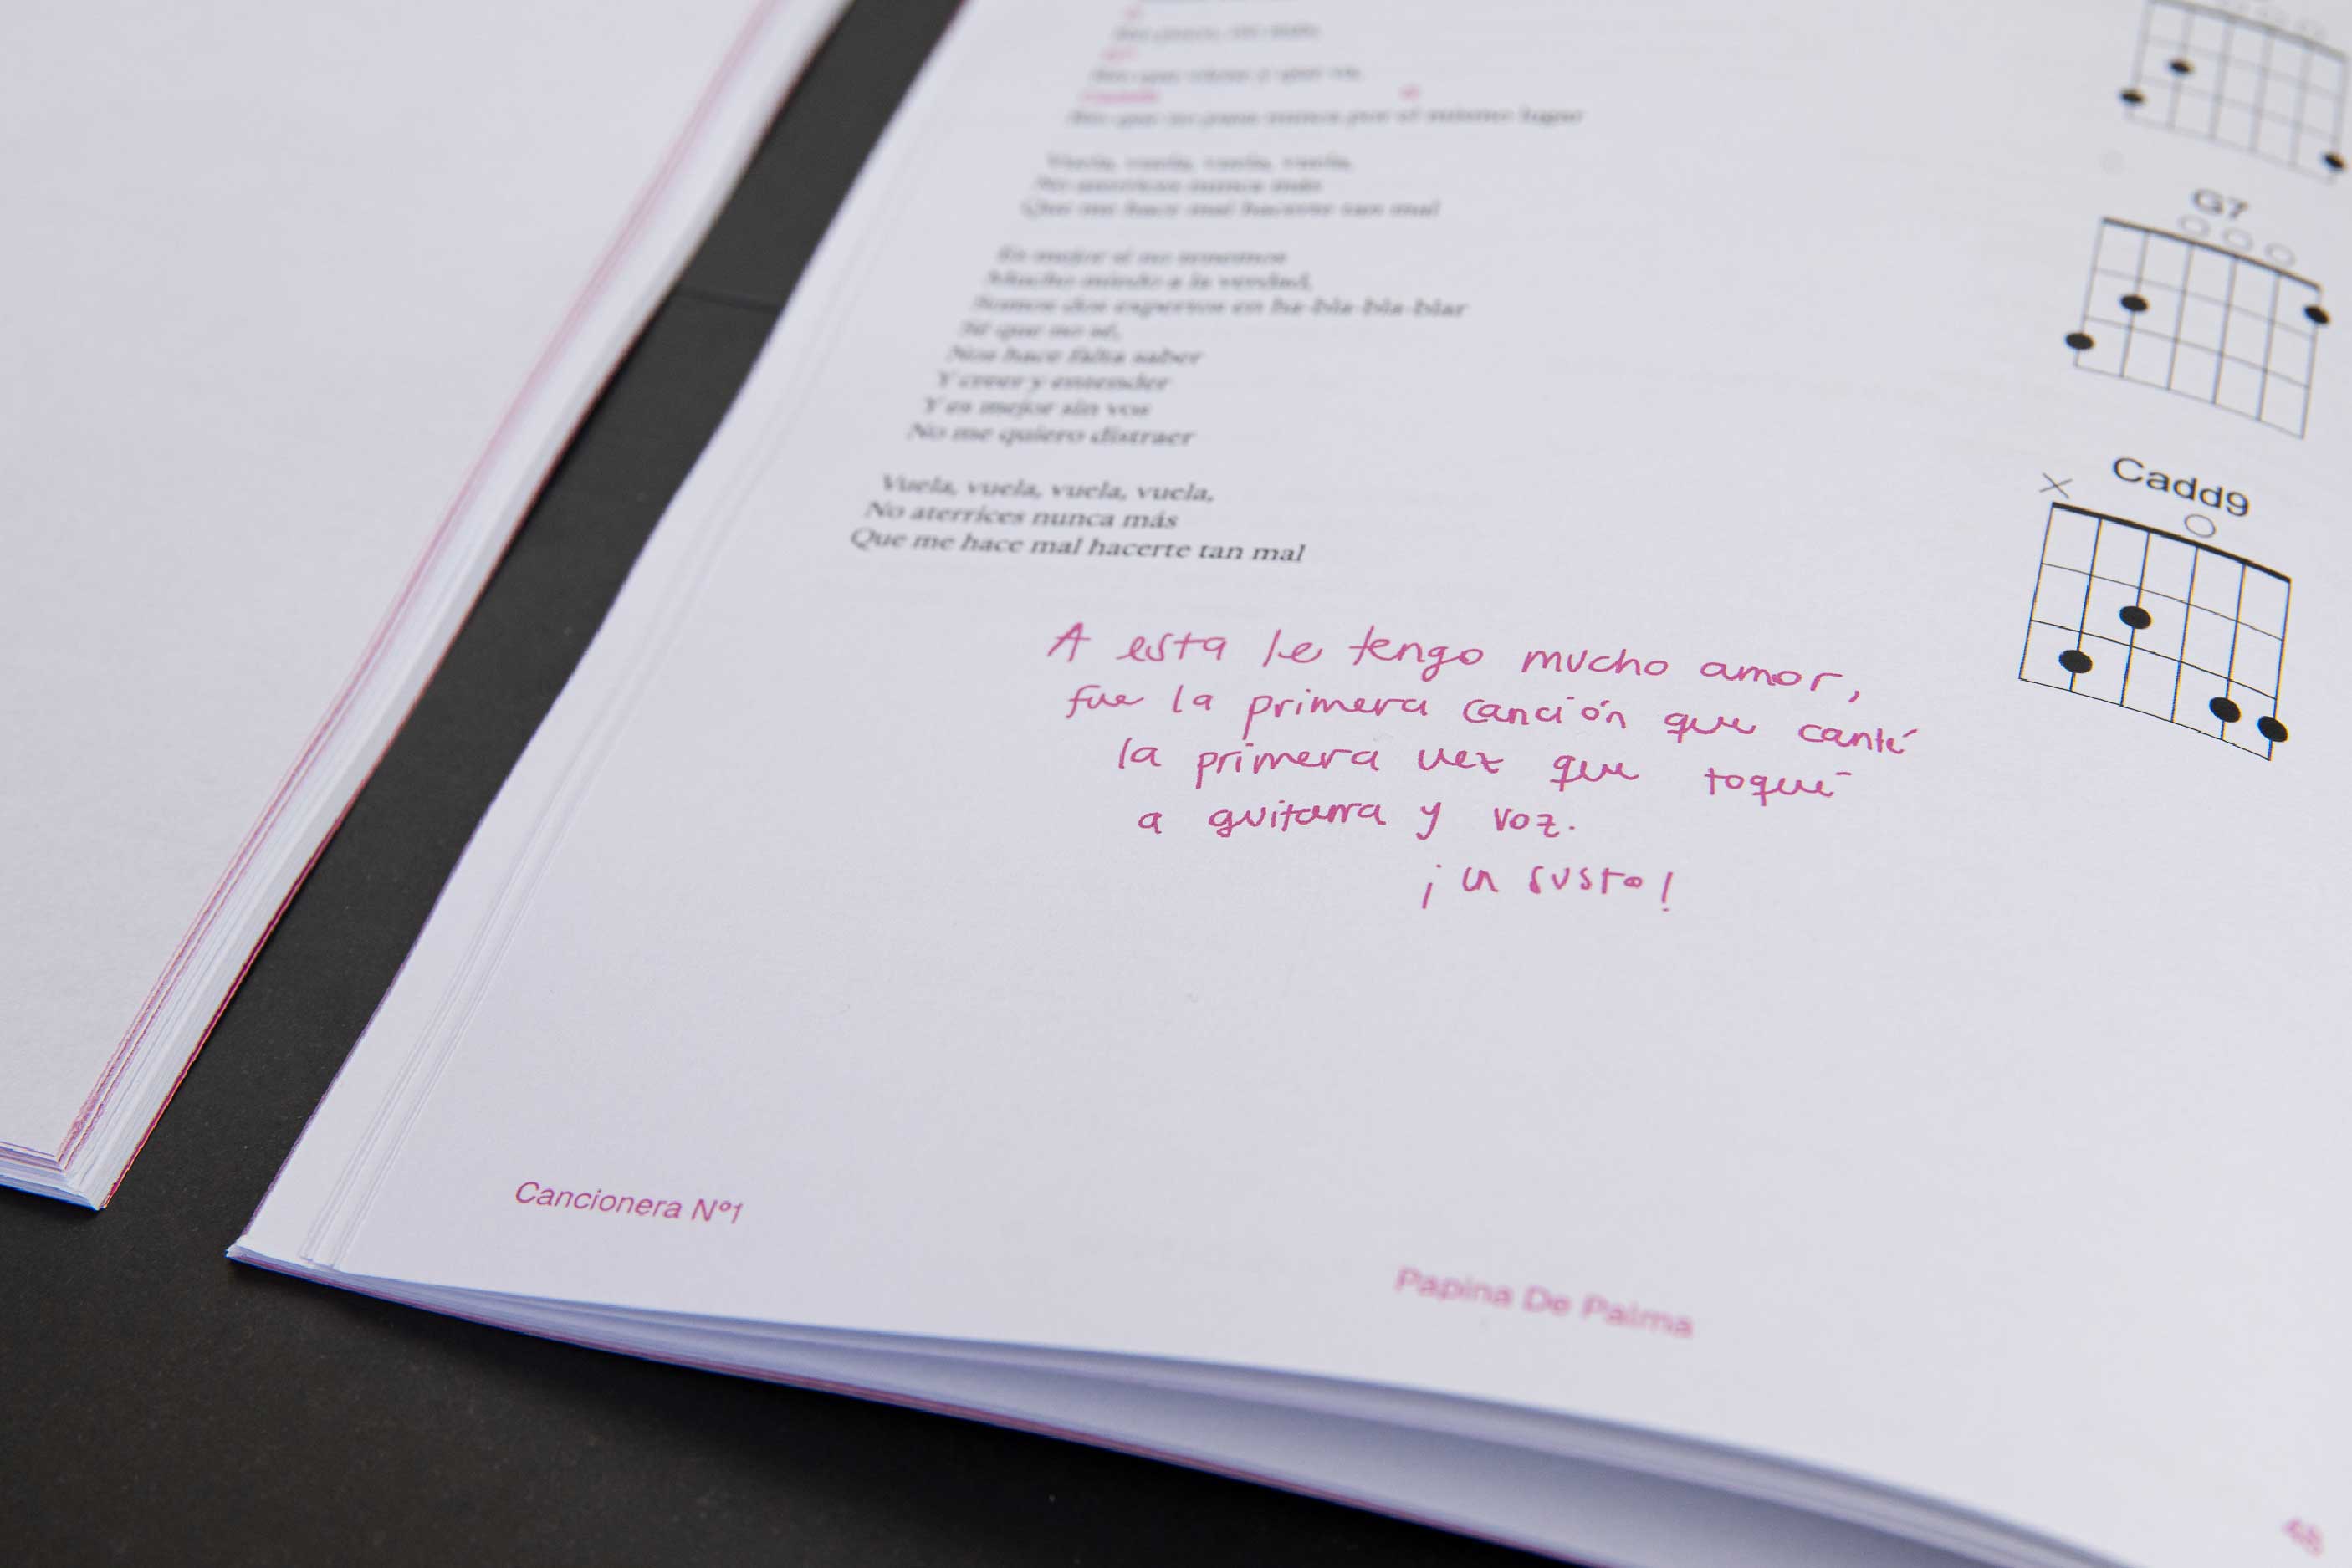 Sin que no pase nunca por el mismo lugar
Vuela, vuela, vuela, vuela,
No aterrices nunca más
Que me hace mal hacerte tan mal
Es mejor si no tenemos
Mucho miedo a la verdad,
Somos dos expertos en ha-bla-bla-blar
Sé que no sé,
Nos hace falta saber
Y creer y entender
Y es mejor sin vos
No me quiero distraer
Vuela, vuela, vuela, vuela,
No aterrices nunca más
Que me hace mal hacerte tan mal
G7
Cadd9
A esta le tengo mucho amor,
fue la primera canción que canté
la primera vez que toqué
a guitarra y voz.
¡un susto!
Cancionera Nº1
Papina De Palma